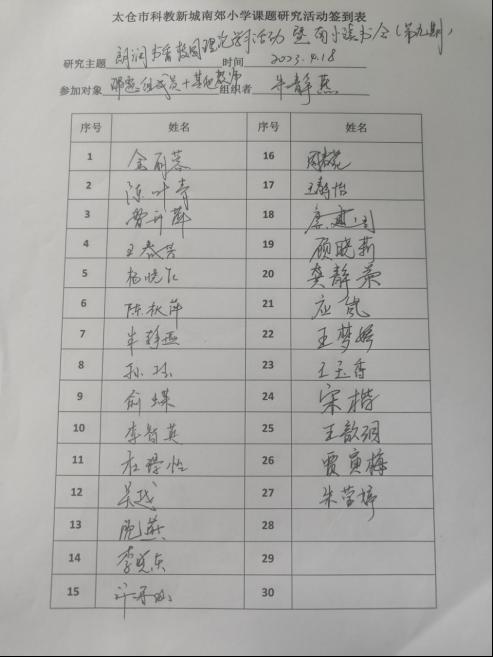 太仓市科教新城南郊小学课题研究活动签到表
研究主题 朗润书香校园理论学习活动暨南小读书会(第九期)
时间 2023.4.18
参加对象 课题组成员+其他教师 组织者 朱静燕
序号 姓名 序号 姓名
1 金丽蓉 16
2 陈叶青 17 王静怡
3 18
4 王春芳 19 顾晓莉
5 杨晓飞 20 龚静荣
6 陈秋萍 21 应航
7 22 王梦婷
8 孙 23 王玉香
9 俞 24 宋楷
10 李智英 25 王歆玥
11 杜 怡 26 贾寅梅
12 吴越 27 朱莹婷
13 燕 28
14 李晓东 29
15 许 30